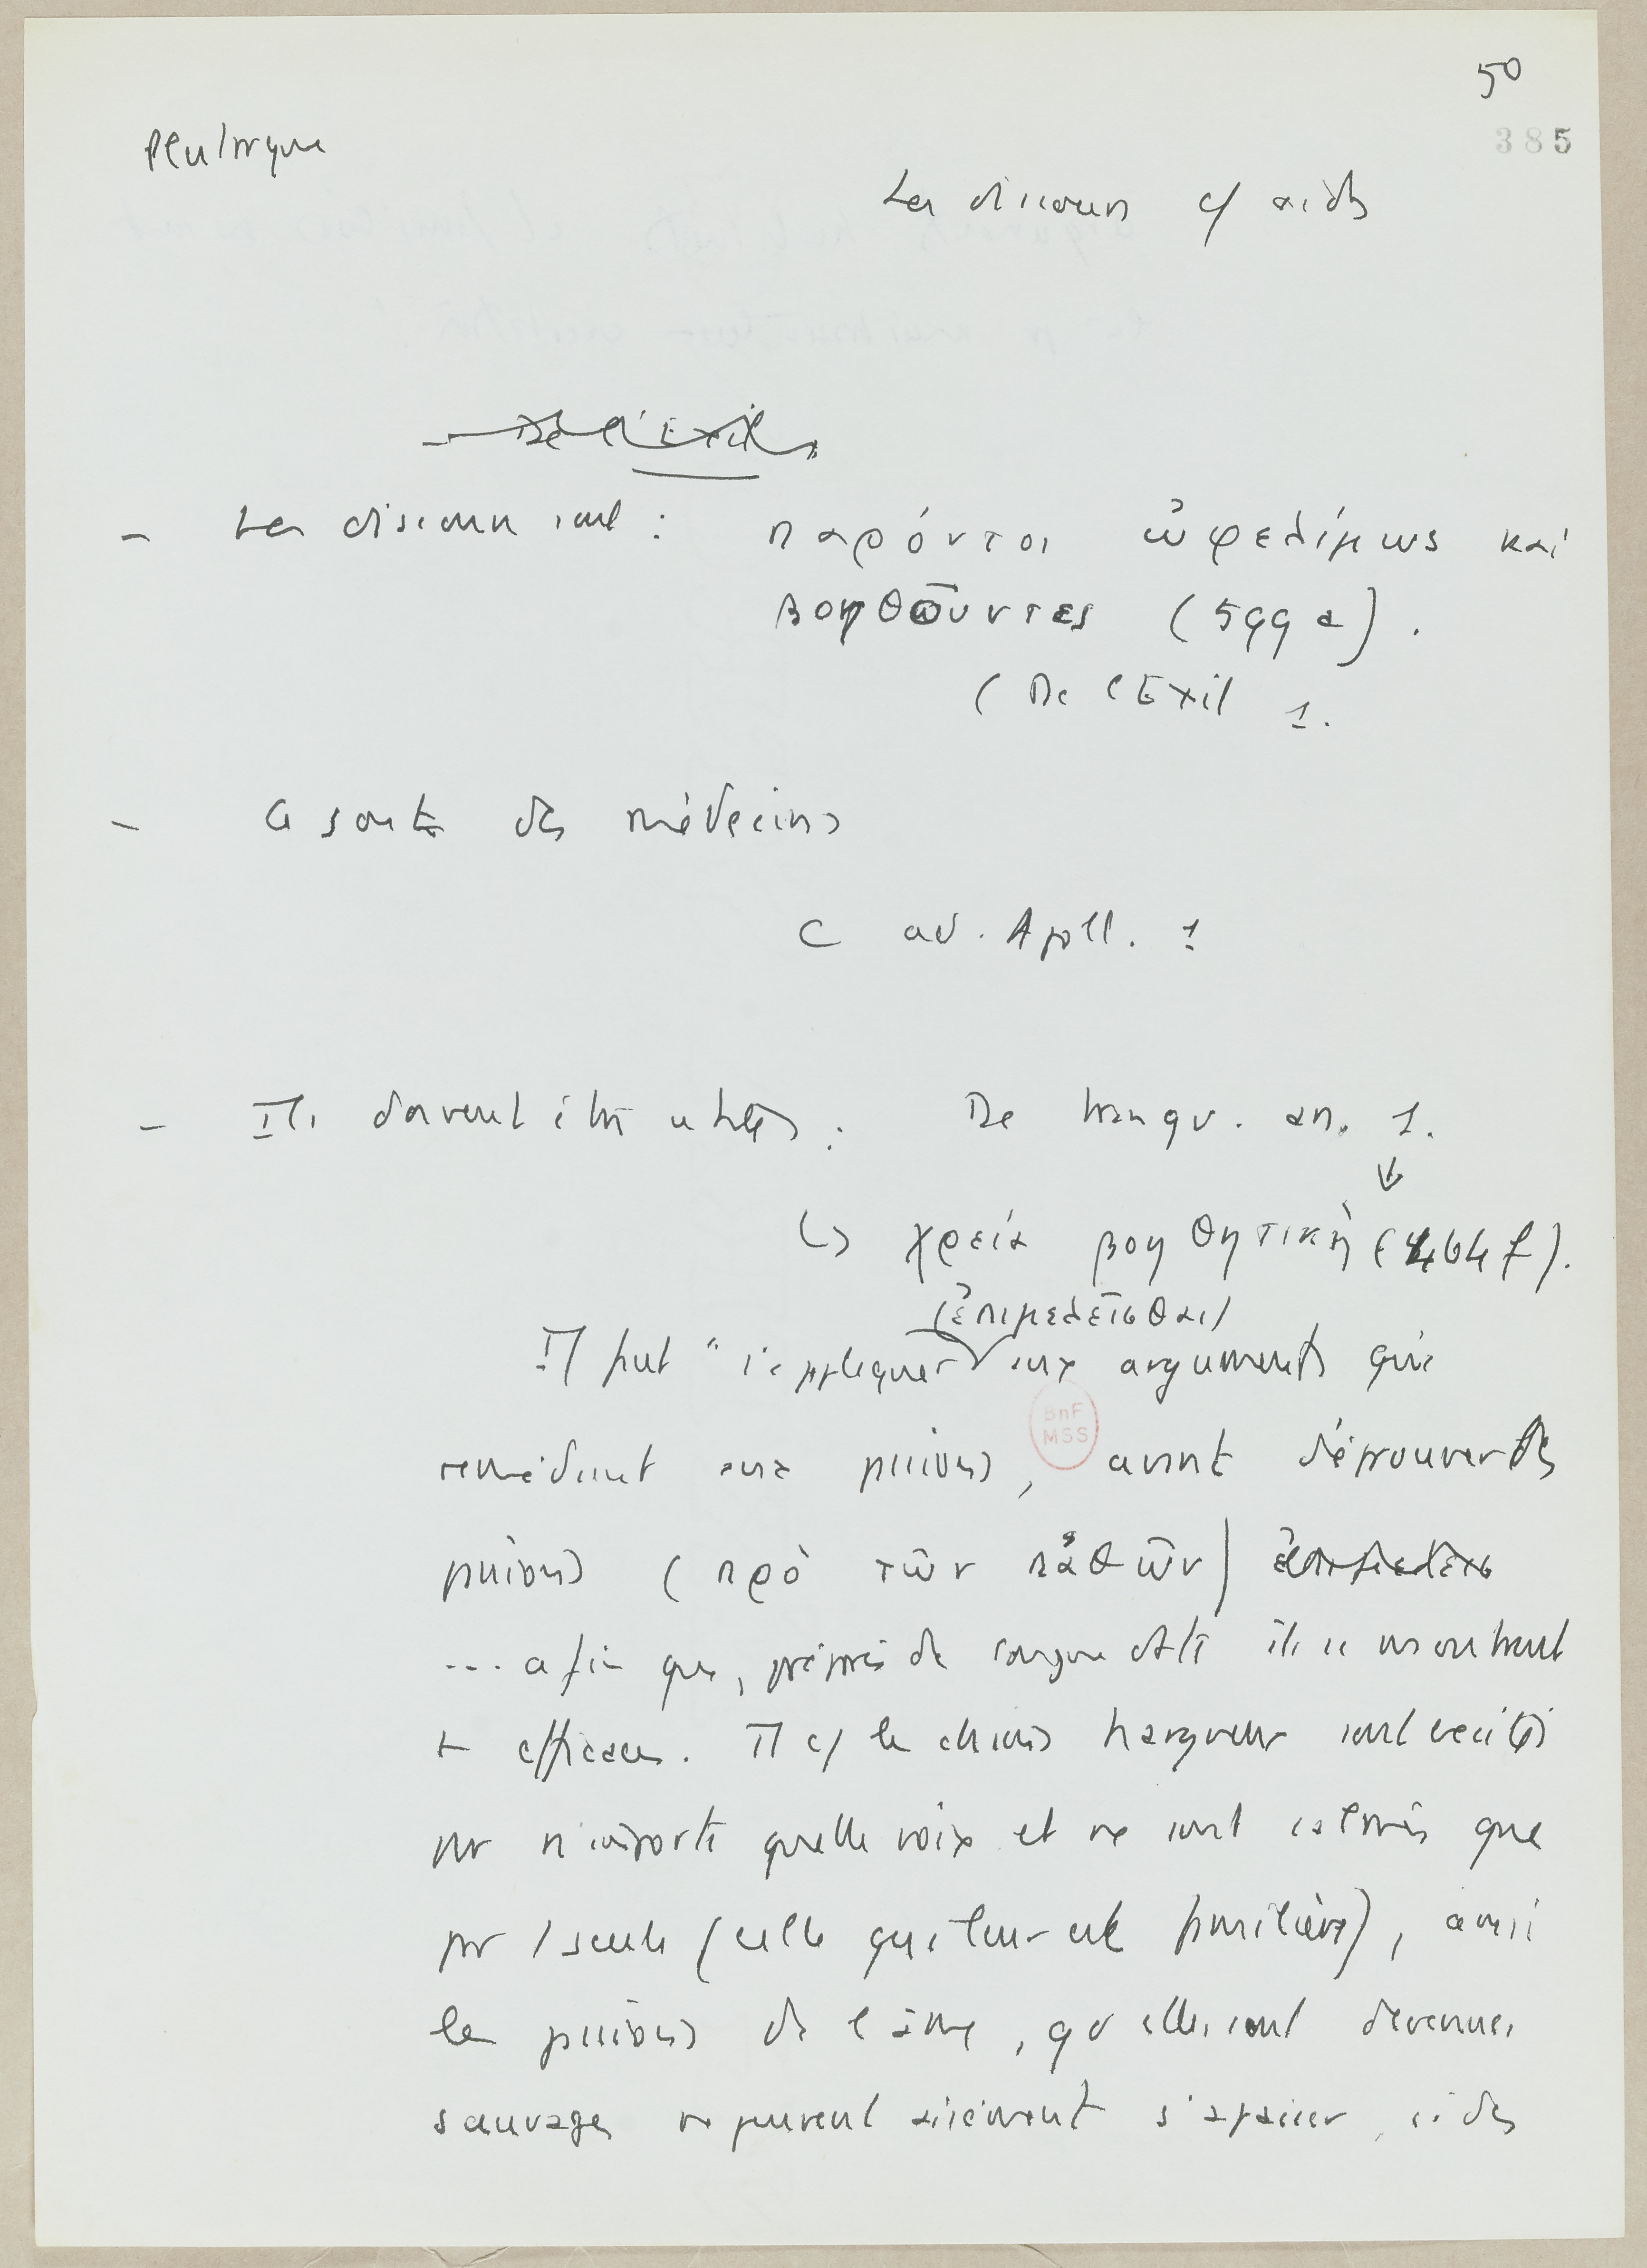 50
385
Plutarque
Les discours c/ aides
- De l'Exil
- Les discours sont : παρόντοι ὠφελίμως καὶ
βοηθοῦντες (599 a).
(De l'Exil 1.
- Ce sont des médecins
C ad. Apoll. 1
- Ils doivent être utiles : De tranqu. an. 1.
↳ χρεία βοηθητική (464 f).
(ἐπιμελεῖσθαι)
Il faut "s'appliquer aux arguments qui
remédient aux passions, avant d'éprouver des
passions (πρὸ τῶν πάθῶν)
... afin que, préparés de longue date ils se montrent
+ efficaces. Il c/ les chiens hargneux sont excités
par n'importe quelle voix et ne sont calmés que
par 1 seule (celle qui leur est familière), ainsi
les passions de l'âme, qd elles sont devenues
sauvages ne peuvent aisément s'apaiser, si des